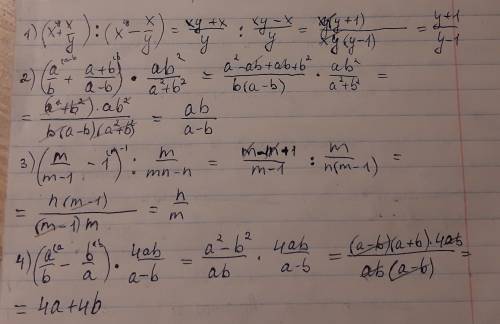 1) (x^y + x/y) : (x^y − x/y) = (xy+x)/y : (xy−x)/y = x(y+1)/(xy(y−1)) = (y+1)/(y−1)
2) (a/b^(a−b + (a+b)/(a−b)^b) · ab²/(a²+b²) = (a²−ab+ab+b²)/(b(a−b)) · ab²/(a²+b²) =
= (a²+b²)·ab²/(b(a−b)(a²+b²)) = ab/(a−b)
3) (m/(m−1) − 1^(m−1) : m/(mn−n) = (m−m+1)/(m−1) : m/(n(m−1)) =
= n(m−1)/((m−1)m) = n/m
4) (a/b^(a − b/a^(b) · 4ab/(a−b) = (a²−b²)/ab · 4ab/(a−b) = (a−b)(a+b)·4ab/(ab(a−b)) =
= 4a+4b